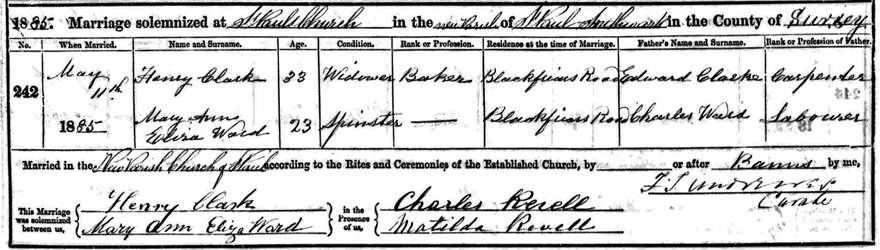 1885. Marriage solemnized at St Pauls Church in the new Parish of St Paul Southwark in the County of Surrey
No. When Married. Name and Surname. Age. Condition. Rank or Profession. Residence at the time of Marriage. Father's Name and Surname. Rank or Profession of Father.
242 May 11th 1885 Henry Clark 33 Widower Baker Blackfriars Road Edward Clarke Carpenter
Mary Ann Eliza Ward 23 Spinster — Blackfriars Road Charles Ward Labourer
Married in the New Parish Church of St Paul according to the Rites and Ceremonies of the Established Church, by or after Banns by me,
This Marriage was solemnized between us, Henry Clark Mary Ann Eliza Ward in the Presence of us, Charles Revell Matilda Revell
Curate